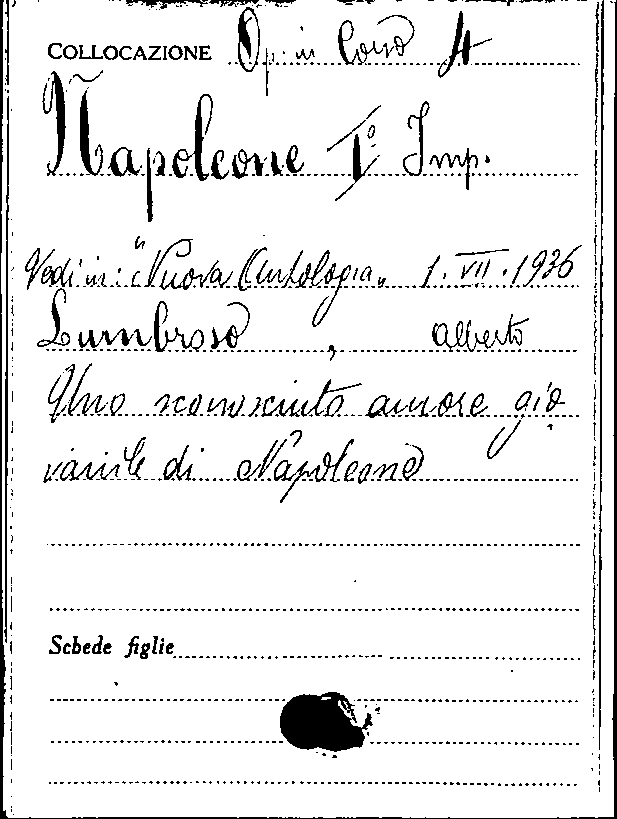 COLLOCAZIONE Op. in Corso 4
Napoleone I° Imp.
Vedi in: "Nuova Antologia„ 1. VII. 1936
Lumbroso, Alberto
Uno sconosciuto amore gio
vanile di Napoleone
Schede figlie